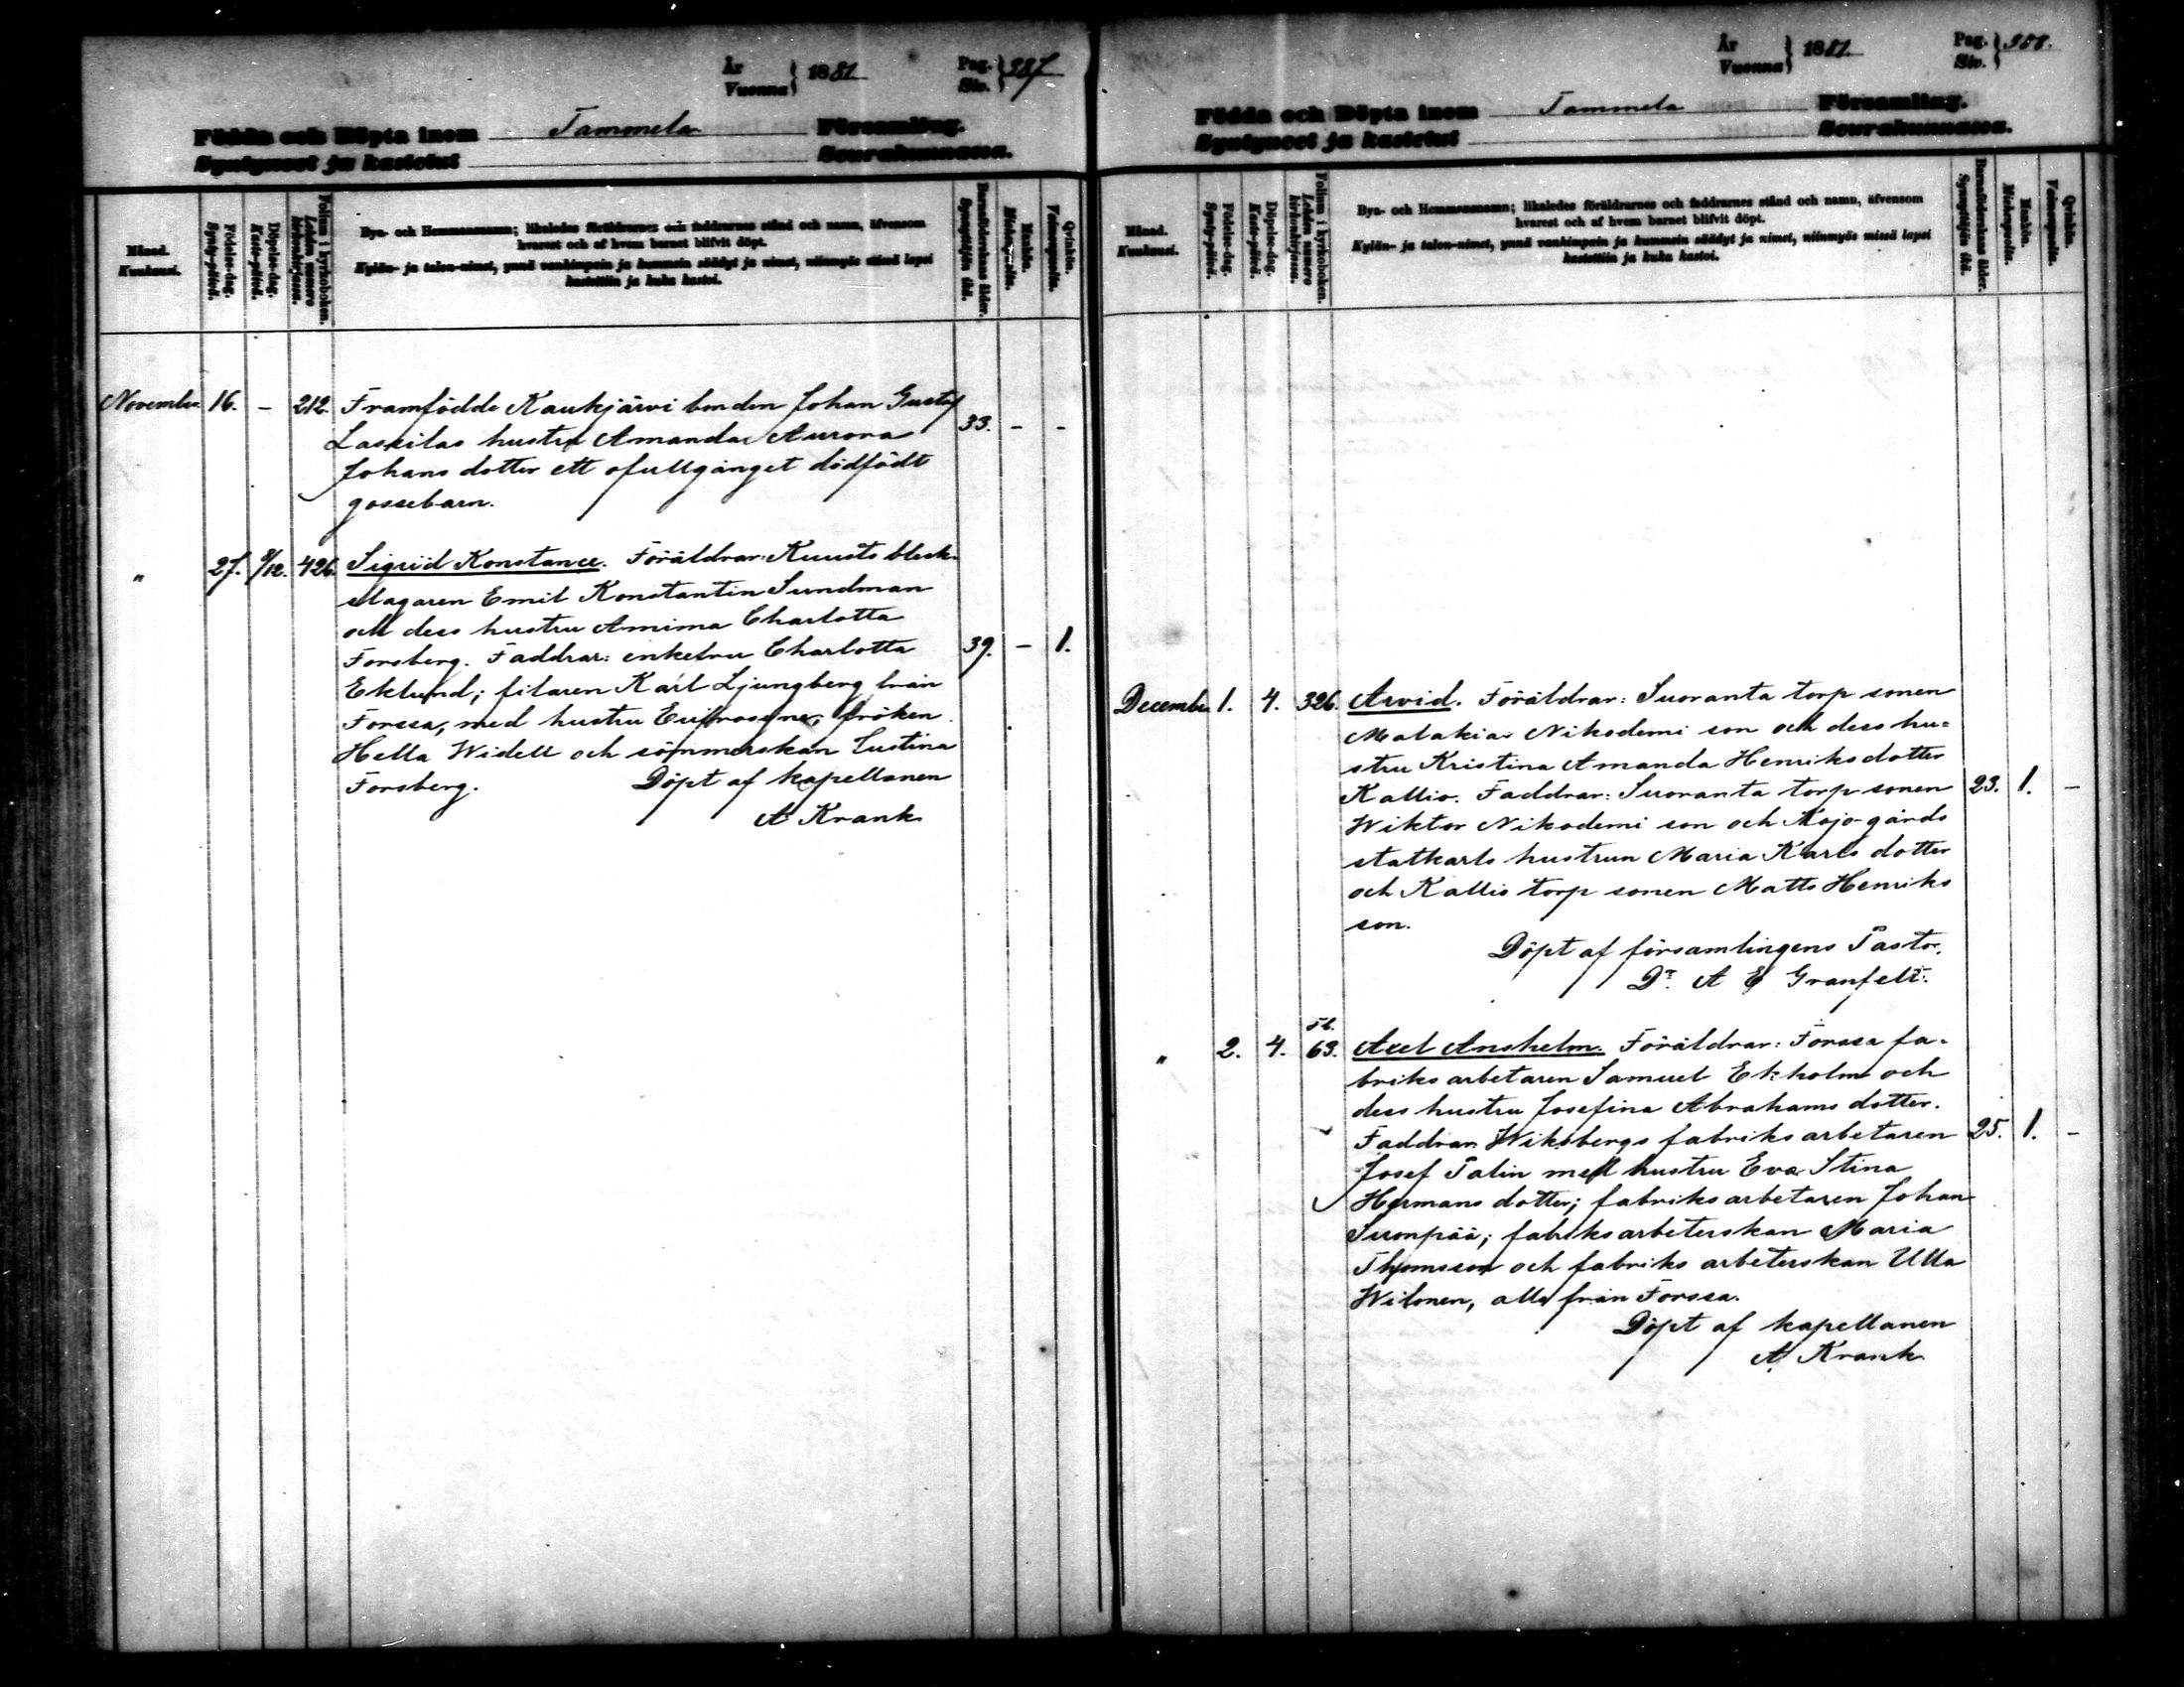 År
Vuonna } 1881
Pag.
Siv. } 387
Födda och Döpta inom Tammela Församling.
Syntyneet ja kastetut Seurakunnassa.
Månad.
Kuukausi.
Födelse-dag.
Synty-päivä.
Döpelse-dag.
Kaste-päivä.
Folium i kyrkoboken.
Lehden numero
kirkonkirjassa.
Bya- och Hemmansnamn; likaledes föräldrarnes och faddrarnes stånd och namn, äfvensom
hvarest och af hvem barnet blifvit döpt.
Kylän- ja talon-nimet, ynnä vanhimpain ja kummein säädyt ja nimet, niinmyös missä lapsi
kastettiin ja kuka kastoi.
Barnaföderskans ålder.
Synnyttäjän ikä.
Mankön.
Miehenpuolia.
Qvinkön.
Vaimonpuolia.
November 16. - 212. Framfödde Kaukjärvi bonden Johan Gustaf
Lassilas hustru Amanda Aurora 33. - -
Johans dotter ett ofullgånget dödfödt
gossebarn.
" 27. 9/12. 426. Sigrid Konstance. Föräldrar: Kuusto bleck-
slagaren Emil Konstantin Sundman
och dess hustru Amima Charlotta
Forsberg. Faddrar: enkefru Charlotta 39. - 1.
Eklund; filaren Karl Ljungberg från
Forssa, med hustru Eufrosyne; fröken
Hella Widell och sömmerskan Justina
Forsberg. Döpt af kapellanen
A Krank
År
Vuonna } 1881
Pag.
Siv. } 388.
Födda och Döpta inom Tammela Församling.
Syntyneet ja kastetut Seurakunnassa.
Månad.
Kuukausi.
Födelse-dag.
Synty-päivä.
Döpelse-dag.
Kaste-päivä.
Folium i kyrkoboken.
Lehden numero
kirkonkirjassa.
Bya- och Hemmansnamn; likaledes föräldrarnes och faddrarnes stånd och namn, äfvensom
hvarest och af hvem barnet blifvit döpt.
Kylän- ja talon-nimet, ynnä vanhimpain ja kummein säädyt ja nimet, niinmyös missä lapsi
kastettiin ja kuka kastoi.
Barnaföderskans ålder.
Synnyttäjän ikä.
Mankön.
Miehenpuolia.
Qvinkön.
Vaimonpuolia.
December 1. 4. 326. Arvid. Föräldrar: Suoranta torp sonen
Malakias Nikodemi son och dess hu-
stru Kristina Amanda Henriks dotter
Kallio. Faddrar: Suoranta torp sonen 23. 1. -
Wiktor Nikodemi son och Mojo-gårds
statkarls hustrun Maria Karls dotter
och Kallio torp sonen Matts Henriks
son.
Döpt af församlingens Pastor.
Dr. A E Granfelt.
" 2. 4. Fb. 63. Axel Anshelm. Föräldrar: Forssa fa-
briks arbetaren Samuel Ekholm och
dess hustru Josefina Abrahams dotter.
Faddrar: Wiksbergs fabriks arbetaren 25. 1. -
Josef Palin med hustru Eva Stina
Hermans dotter; fabriks arbetaren Johan
Suonpää; fabriks arbeterskan Maria
Thomsson och fabriks arbeterskan Ulla
Wilonen, alla från Forssa.
Döpt af kapellanen
A Krank